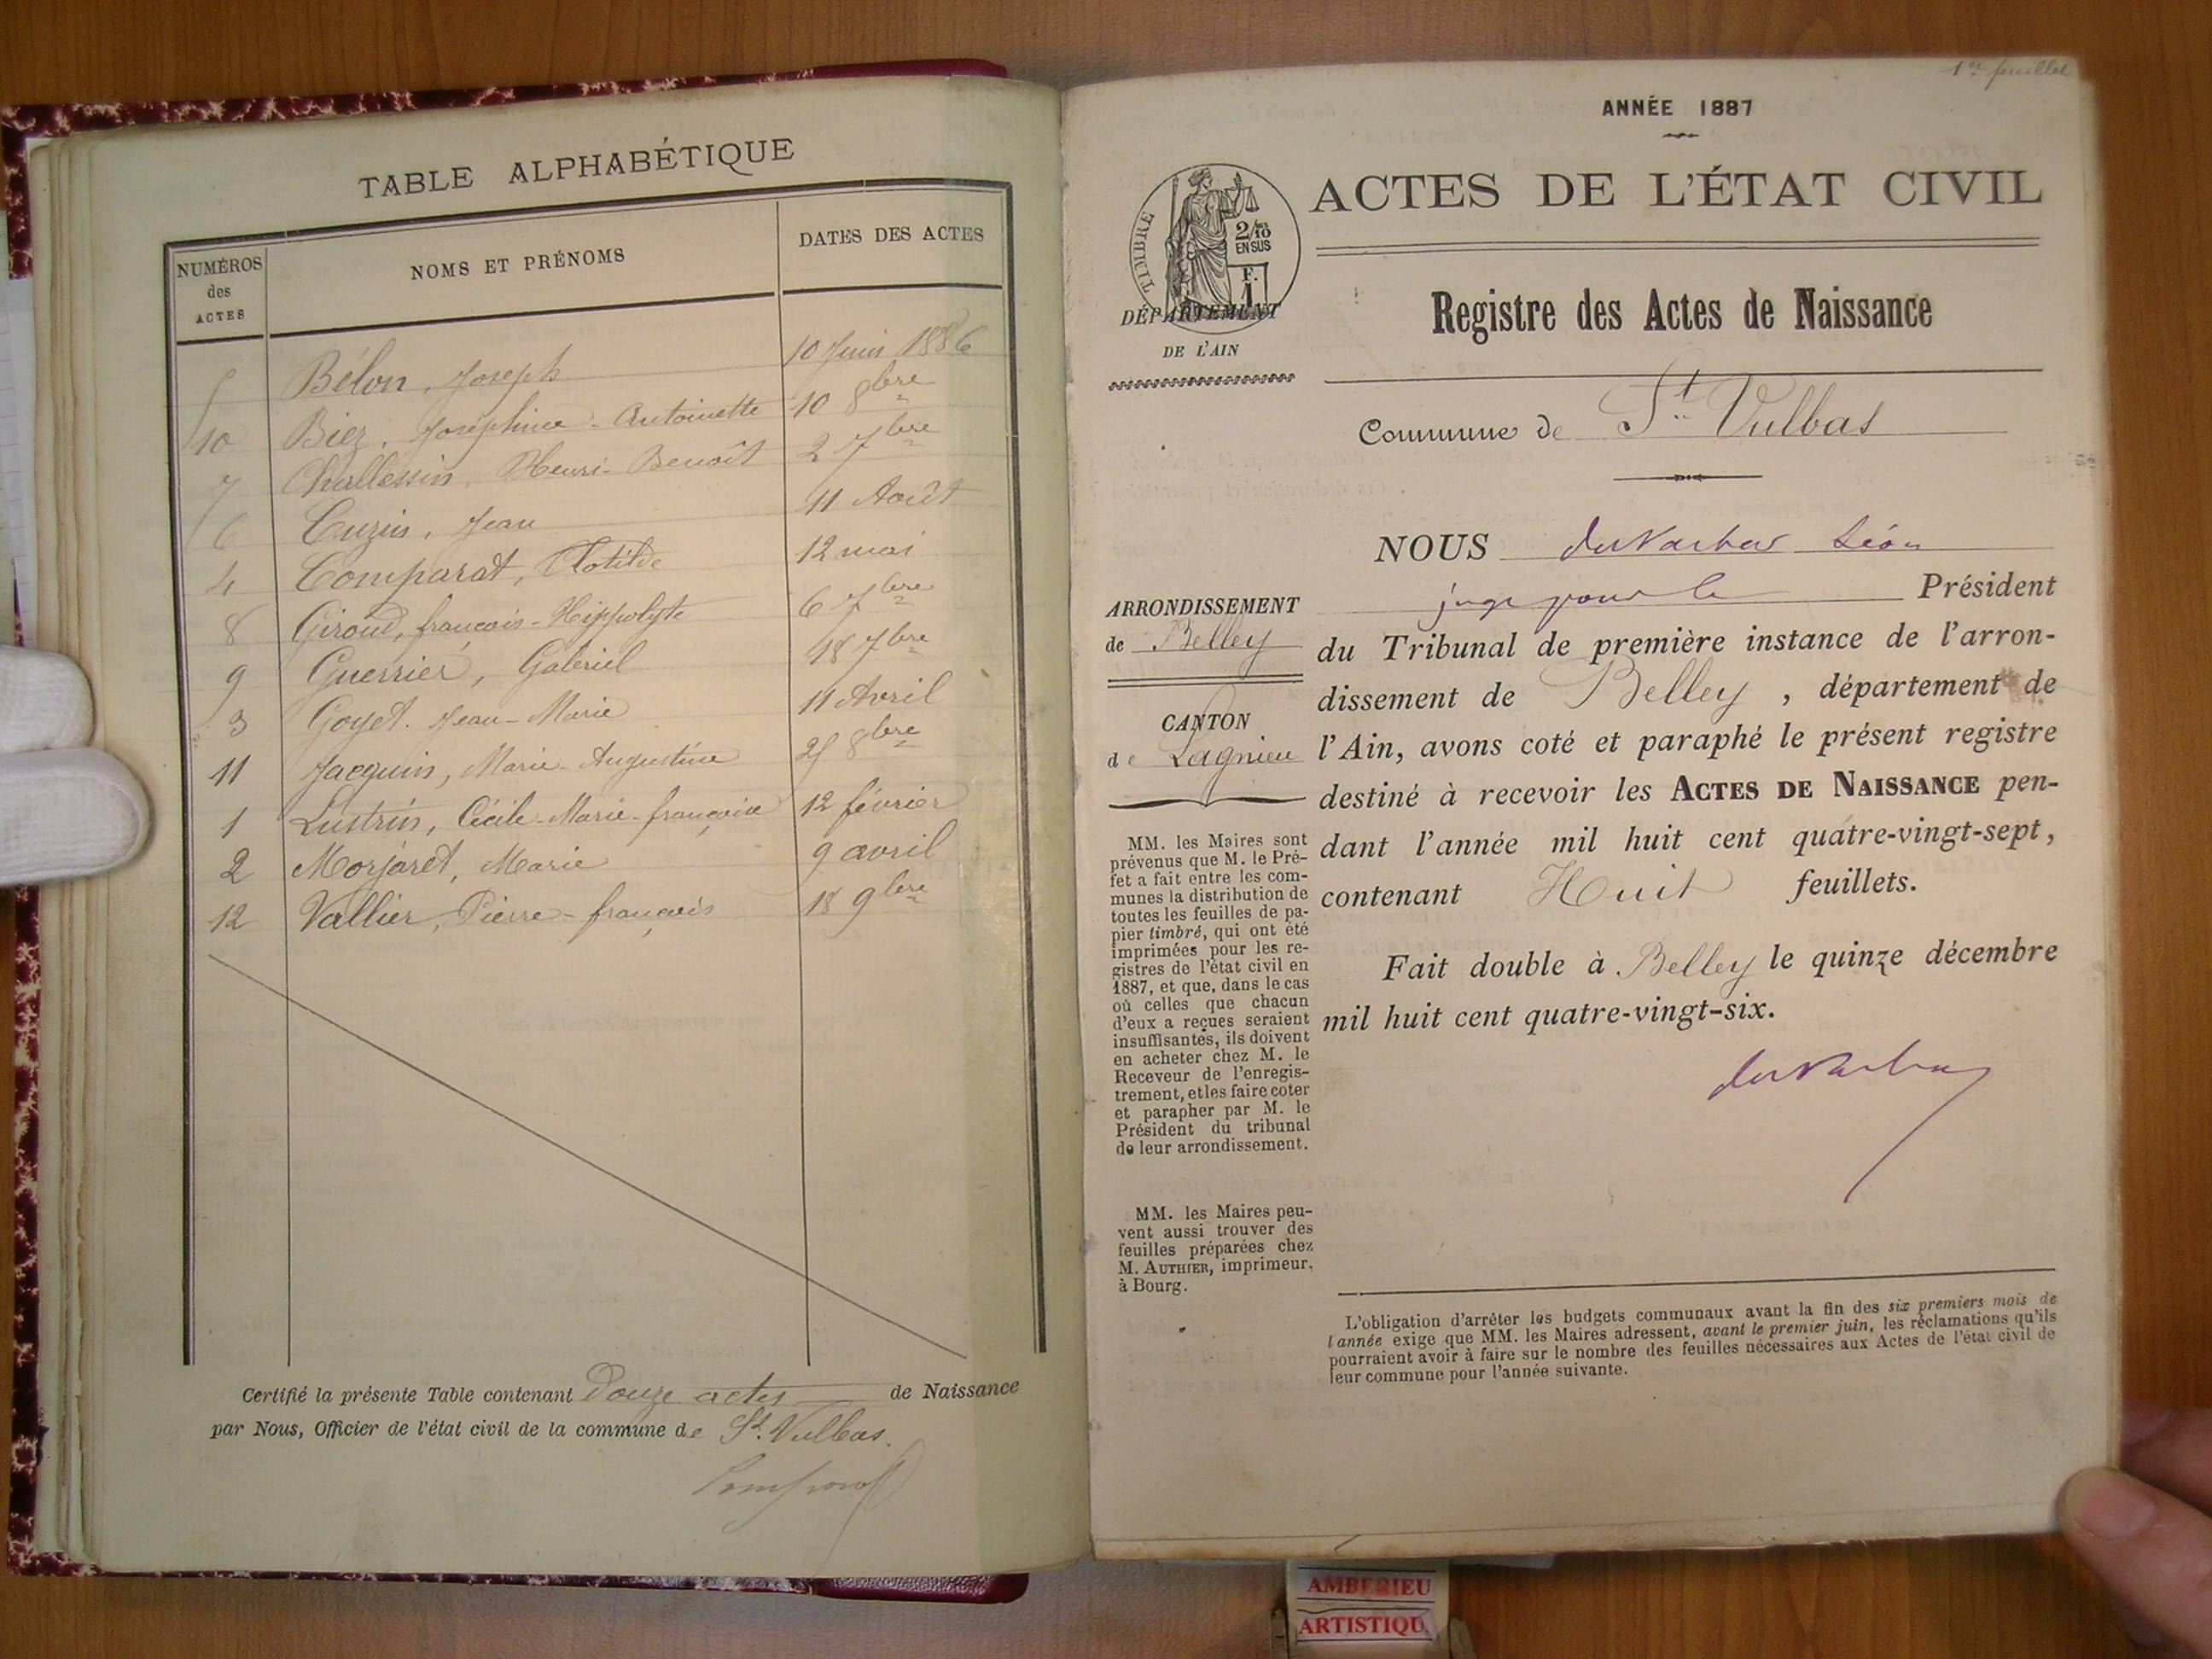 TABLE ALPHABÉTIQUE
NUMÉROS des ACTES NOMS ET PRÉNOMS DATES DES ACTES
5 Bélon, Joseph 10 Juin 1886
10 Biez, Joséphine-Antoinette 10 8bre
7 Challessin, Henri-Benoît 2 7bre
6 Cuzin, Jean 11 Août
4 Comparat, Clotilde 12 mai
8 Giroud, françois-Hippolyte 6 7bre
9 Guerrier, Gabriel 18 7bre
3 Goyet. Jean-Marie 11 Avril
11 Jacquin, Marie-Augustine 25 8bre
1 Lustrin, Cécile-Marie-françoise 12 février
2 Morjaret, Marie 9 avril
12 Vallier, Pierre-françois 18 9bre
Certifié la présente Table contenant Douze actes de Naissance
par Nous, Officier de l'état civil de la commune de St. Vulbas.
1er feuillet
ANNÉE 1887
TIMBRE
2/10
EN SUS
F.
1
DÉPARTEMENT
DE L'AIN
ACTES DE L'ÉTAT CIVIL
Registre des Actes de Naissance
Commune de St Vulbas
ARRONDISSEMENT
de Belley
CANTON
de Lagnieu
MM. les Maires sont
prévenus que M. le Pré-
fet a fait entre les com-
munes la distribution de
toutes les feuilles de pa-
pier timbré, qui ont été
imprimées pour les re-
gistres de l'état civil en
1887, et que, dans le cas
où celles que chacun
d'eux a reçues seraient
insuffisantes, ils doivent
en acheter chez M. le
Receveur de l'enregis-
trement, et les faire coter
et parapher par M. le
Président du tribunal
de leur arrondissement.
MM. les Maires peu-
vent aussi trouver des
feuilles préparées chez
M. AUTHIER, imprimeur,
à Bourg.
NOUS Léon
juge pour le Président
du Tribunal de première instance de l'arron-
dissement de Belley, département de
l'Ain, avons coté et paraphé le présent registre
destiné à recevoir les ACTES DE NAISSANCE pen-
dant l'année mil huit cent quatre-vingt-sept,
contenant Huit feuillets.
Fait double à Belley le quinze décembre
mil huit cent quatre-vingt-six.
L'obligation d'arrêter les budgets communaux avant la fin des six premiers mois de
l'année exige que MM. les Maires adressent, avant le premier juin, les réclamations qu'ils
pourraient avoir à faire sur le nombre des feuilles nécessaires aux Actes de l'état civil de
leur commune pour l'année suivante.
AMBERIEU
ARTISTIQU